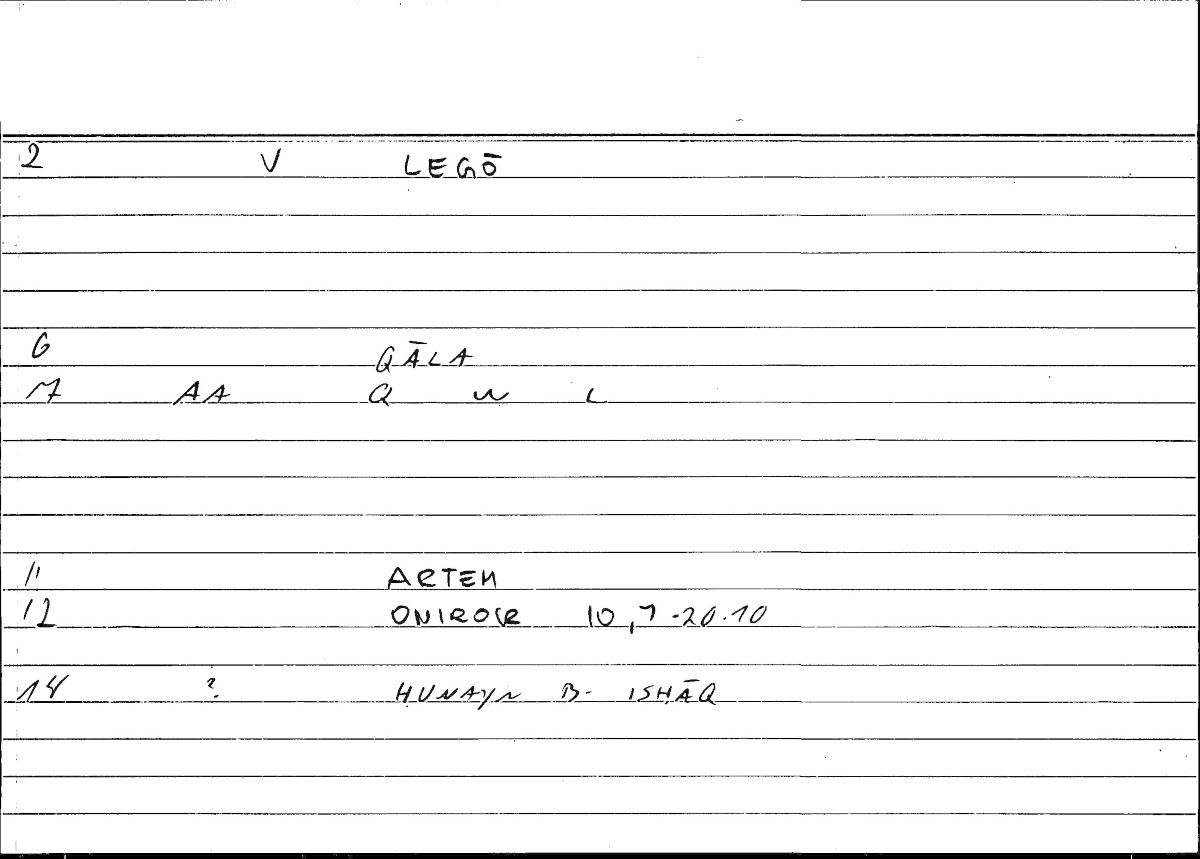 2 V LEGŌ
6 QĀLA
7 AA Q w L
11 ARTEM
12 ONIROCR 10,7-20.10
14 ? ḤUNAYN B- ISḤĀQ